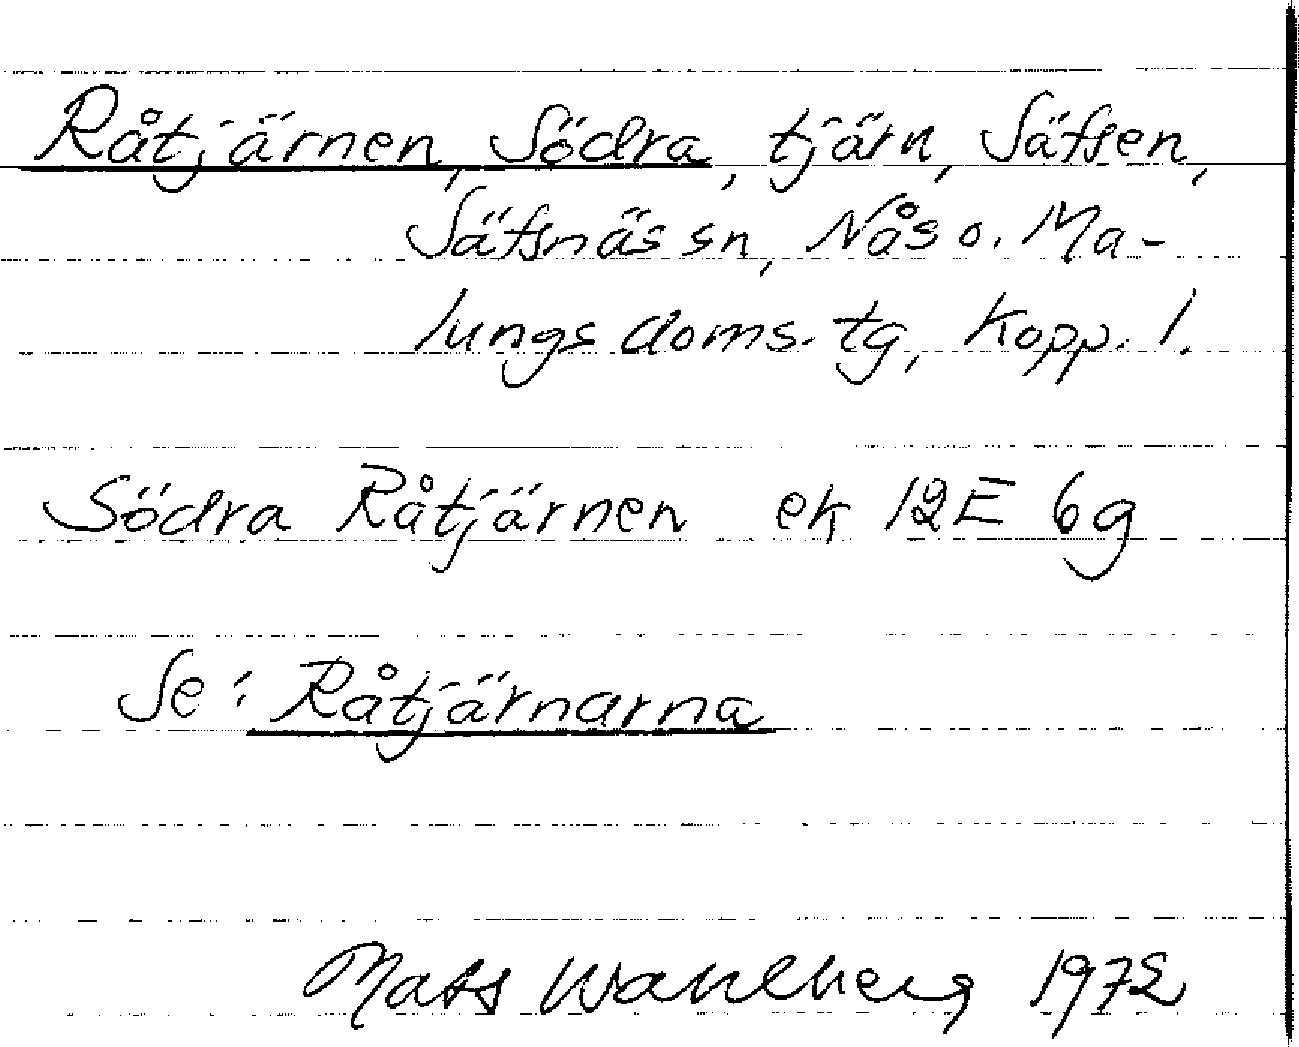 Råtjärnen, Södra, tjärn, Säfsen,
Säfsnäs sn, Nås o. Ma-
lungs doms. tg, Kopp. l.
Södra Råtjärnen ek 12E 6g
Se: Råtjärnarna
Mats Wahlberg 1972